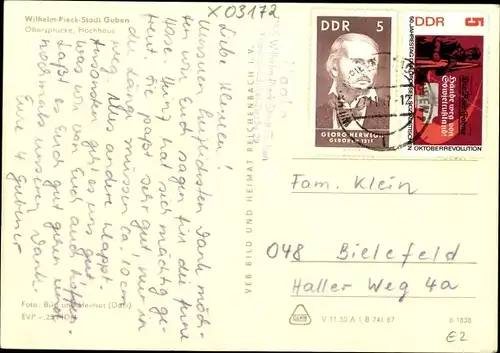 Wilhelm-Pieck-Stadt Guben
Obersprucke, Hochhaus
X 03172
Liebe Kleinen!
Unseren herzlichsten Dank möch-
ten wir Euch sagen für die
Hans Jürg hat sich mächtig ge-
freut. Sie paßt sehr gut, nur in
die Länge müssen ca. 10 cm
weg. Alles andere klappt.
Ansonsten geht es uns gut,
was wir von Euch auch hoffen.
Laßt es Euch gut gehen und
nochmals unseren Dank.
Eure 4 Gubener
Foto: Bild und Heimat (Darr)
EVP
VEB BILD UND HEIMAT REICHENBACH I. V.
DDR 5
GEORG HERWEGH
GEBOREN 1817
DDR 5
50. JAHRESTAG DER GROSSEN SOZIALISTISCHEN
OKTOBERREVOLUTION
Hände weg von
Sowjetrußland!
Fam. Klein
048 Bielefeld
Haller Weg 4a
V 11 50 A 1 B 741 67
6-1838
E2